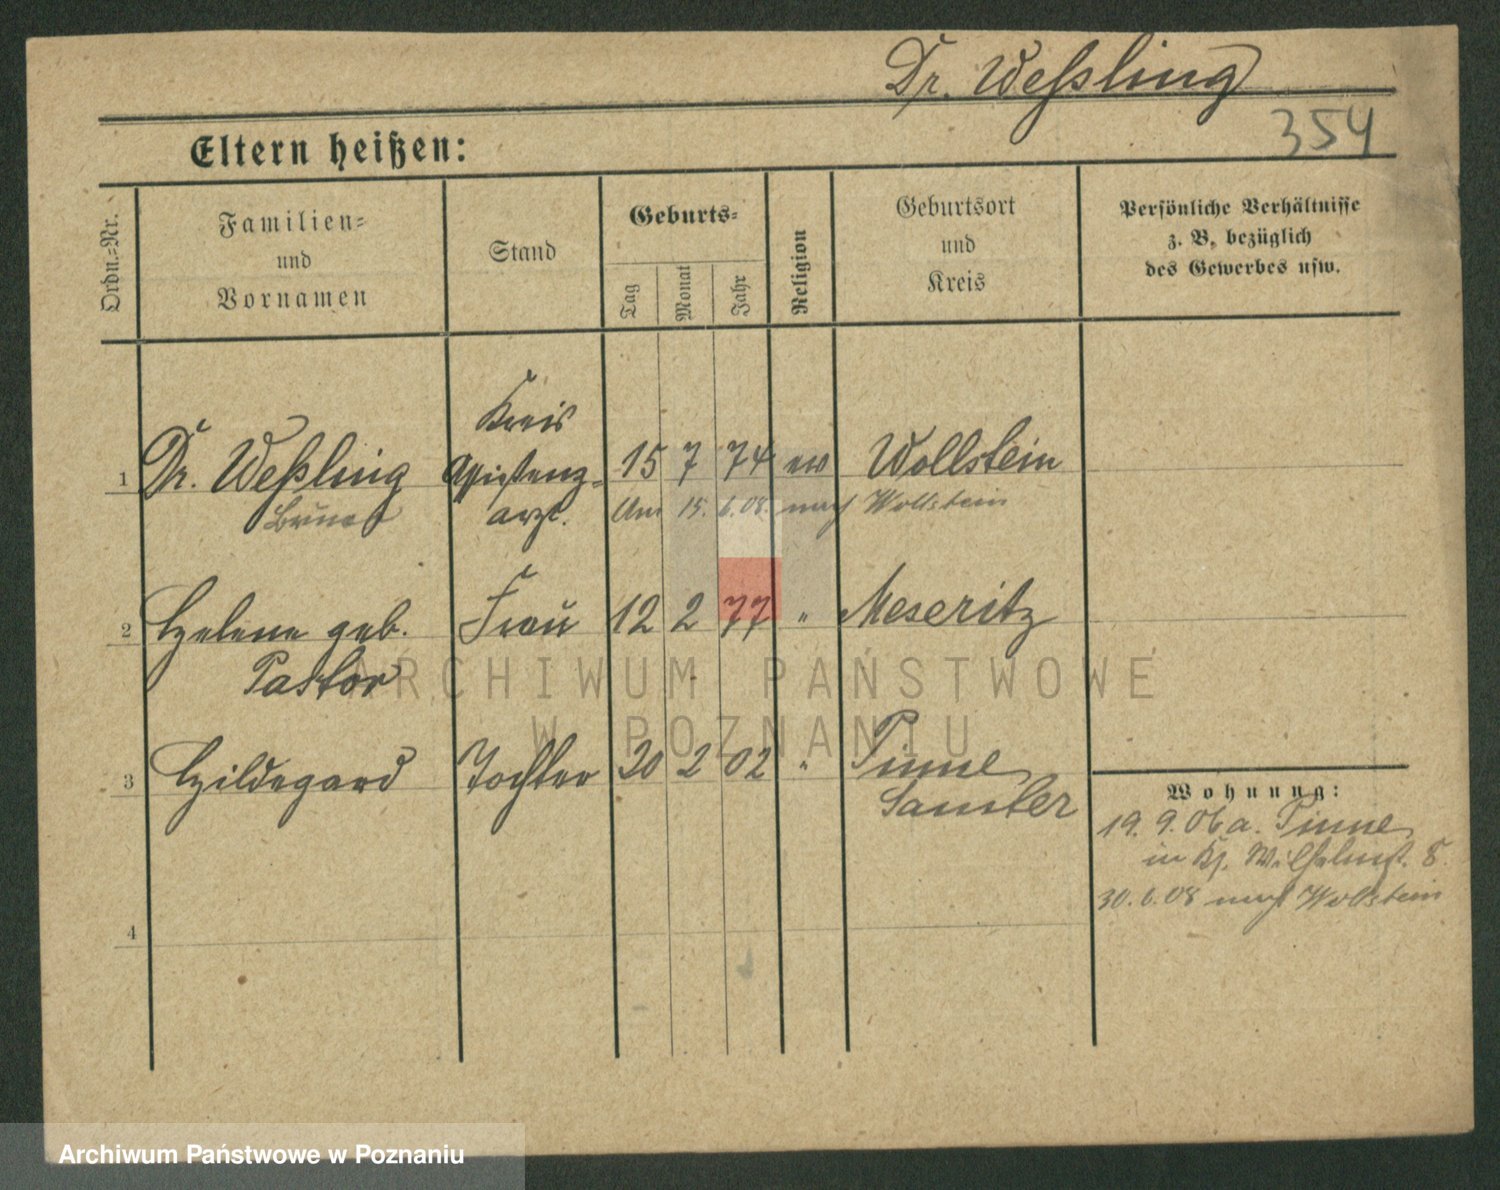 Dr. Weßling
354
Eltern heißen:
Ordn.=Nr.
Familien=
und
Vornamen
Stand
Geburts=
Tag
Monat
Jahr
Religion
Geburtsort
und
Kreis
Persönliche Verhältnisse
z. B. bezüglich
des Gewerbes usw.
Kreis
1 Dr. Weßling Assistenz= 15 7 74 ev Wollstein
Bruno arzt. Am 15. 6. 08. nach Wollstein
2 Helene geb. Frau 12 2 77 " Meseritz
Pastor
3 Hildegard Tochter 20 2 02 " Pinne
Samter
Wohnung:
19. 9. 06 a. Pinne
in Wilhelmst. 8.
30. 6. 08 nach Wollstein
4
ARCHIWUM PAŃSTWOWE
W POZNANIU
Archiwum Państwowe w Poznaniu